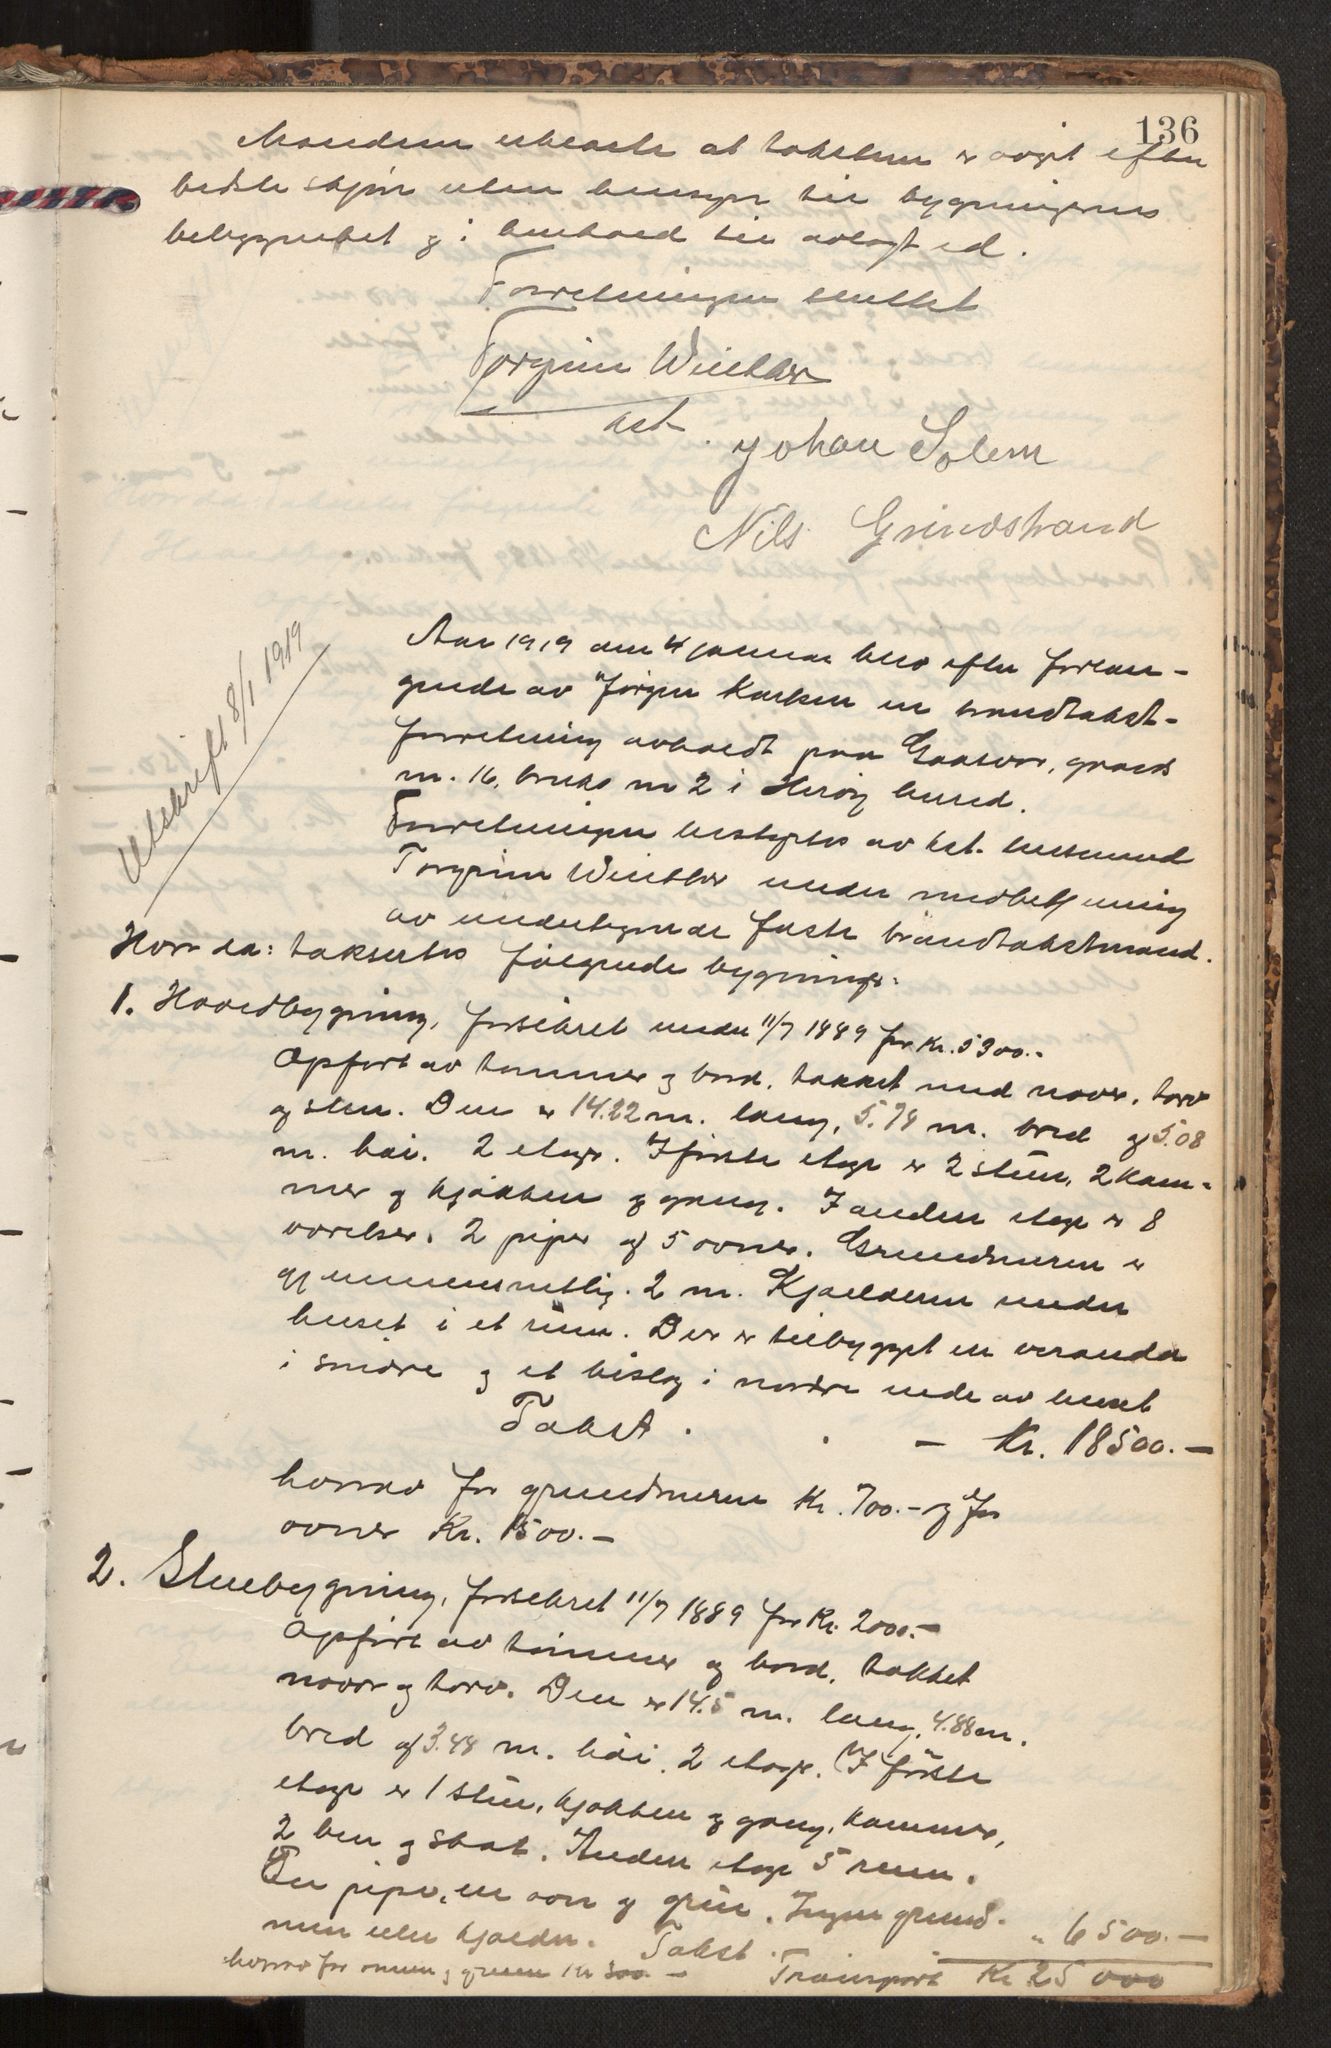 136
Mændene erklærte at taksten er avgit efter
bedste skjøn uten hensyn til bygningernes
beliggenhet og i henhold til avlagt ed.
Forretningen sluttet
Torgrim Winther
ast.
Johan Solem
Nils Grindstrand
Utskrift 8/1 1919
Aar 1919 den 4 januar blev efter forlan-
gende av Jørgen Karlsen en brandtakst-
forretning avholdt paa Gaasvær, gaards
nr. 16, bruks nr 2 i Herøy herred.
Forretningen bestyrtes av kst. lensmand
Torgrim Winther under medbetjening
av undertegnede faste brandtakstmænd.
Hvorda: taksertes følgende bygninger:
1. Hovedbygning, forsikret under 11/7 1889 for Kr. 5300.-
Opført av tømmer og bord, tækket med næver, torv
og sten. Den er 14.22 m. lang, 5.78 m. bred og 5.08
m. høi. 2 etager. I første etage er 2 stuer, 2 kam-
mer og kjøkken og gang. I anden etage er 8
værelser. 2 piper og 5 ovner. Grundmuren er
gjennemsnitlig 2 m. Kjælderen under
huset i et rum. Der er tilbygget en veranda
i søndre og et bislag i nordre ende av huset
Takst. . - Kr. 18500.-
hvorav for grundmuren Kr. 700.- og for
ovner Kr. 1500.-
2. Stuebygning, forsikret 11/7 1889 for Kr. 2000.-
Opført av tømmer og bord, tækket
næver og torv. Den er 14.5 m. lang, 4.88 m.
bred og 3.48 m. høi. 2 etager. I første
etage er 1 stue, kjøkken og gang, kammer,
2 og . Anden etage 5 rum.
En pipe, en ovn og grue. Ingen grund-
mur eller kjælder. Takst. " 6500.-
hvorav for ovnen og gruen Kr 300.- Transport Kr 25 000